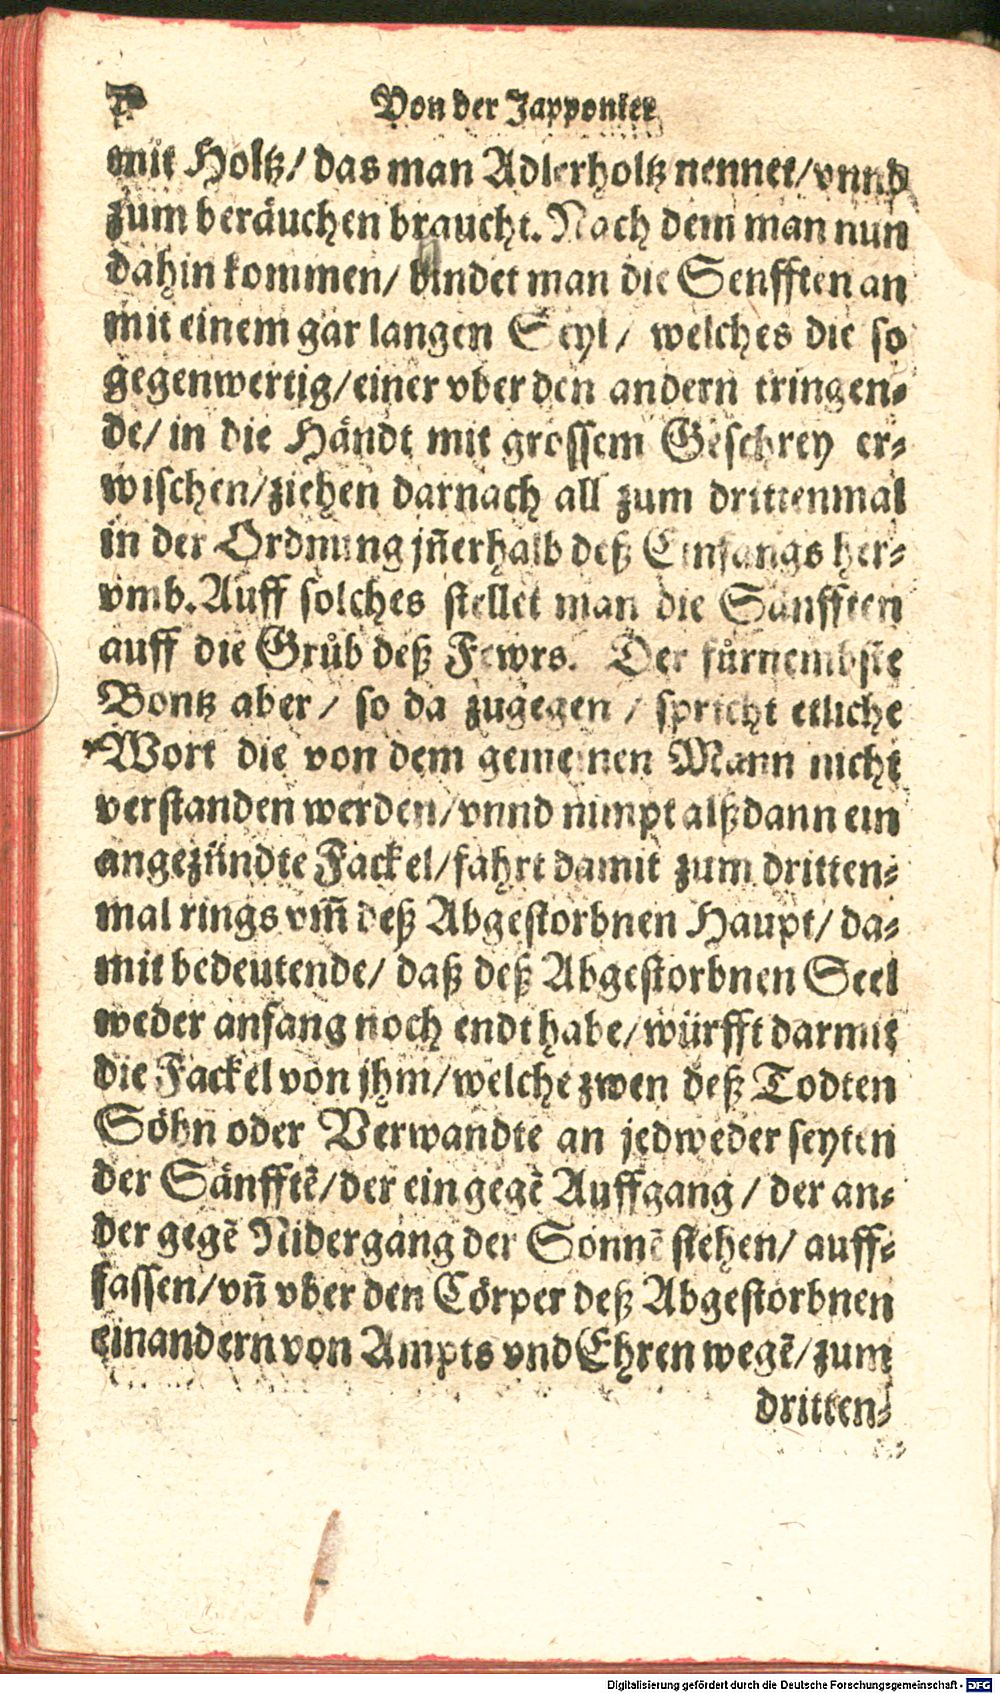 Von der Japponier
mit Holtz/ das man Adlerholtz nennet/ vnnd
zum beräuchen braucht. Nach dem man nun
dahin kommen/ bindet man die Senfften an
mit einem gar langen Seyl/ welches die so
gegenwertig/ einer vber den andern tringen-
de/ in die Händt mit grossem Geschrey er-
wischen/ ziehen darnach all zum drittenmal
in der Ordnung jñerhalb deß Einfangs her-
vmb. Auff solches stellet man die Sänfften
auff die Grůb deß Fewrs. Der fürnembste
Bontz aber/ so da zugegen/ spricht etliche
Wort die von dem gemeinen Mann nicht
verstanden werden/ vnnd nimpt alßdann ein
angezündte Fackel/ fahrt damit zum dritten-
mal rings vm̃ deß Abgestorbnen Haupt/ da-
mit bedeutende/ daß deß Abgestorbnen Seel
weder anfang noch endt habe/ würfft darmit
die Fackel von jhm/ welche zwen deß Todten
Söhn oder Verwandte an jedweder seyten
der Sänfftẽ/ der ein gegẽ Auffgang/ der an-
der gegẽ Nidergang der Sonnẽ stehen/ auff-
fassen/ vñ vber den Cörper deß Abgestorbnen
einandern von Ampts vnd Ehren wegẽ/ zum
dritten-
Digitalisierung gefördert durch die Deutsche Forschungsgemeinschaft - DFG